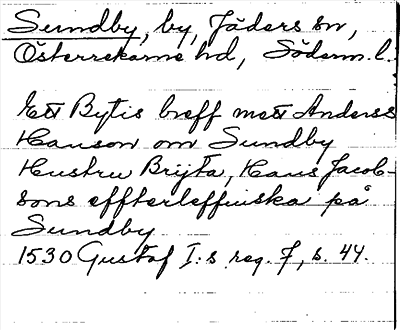 Sundby, by, Jäders sn,
Österrekarne hd, Söderm. l.
Ett Bytis breff mett Anderss
Hanson om Sundby
Hustru Brijta, Hans Jacob-
sons effterleffuiska på
Sundby
1530 Gustaf I:s reg. 7, s. 44.